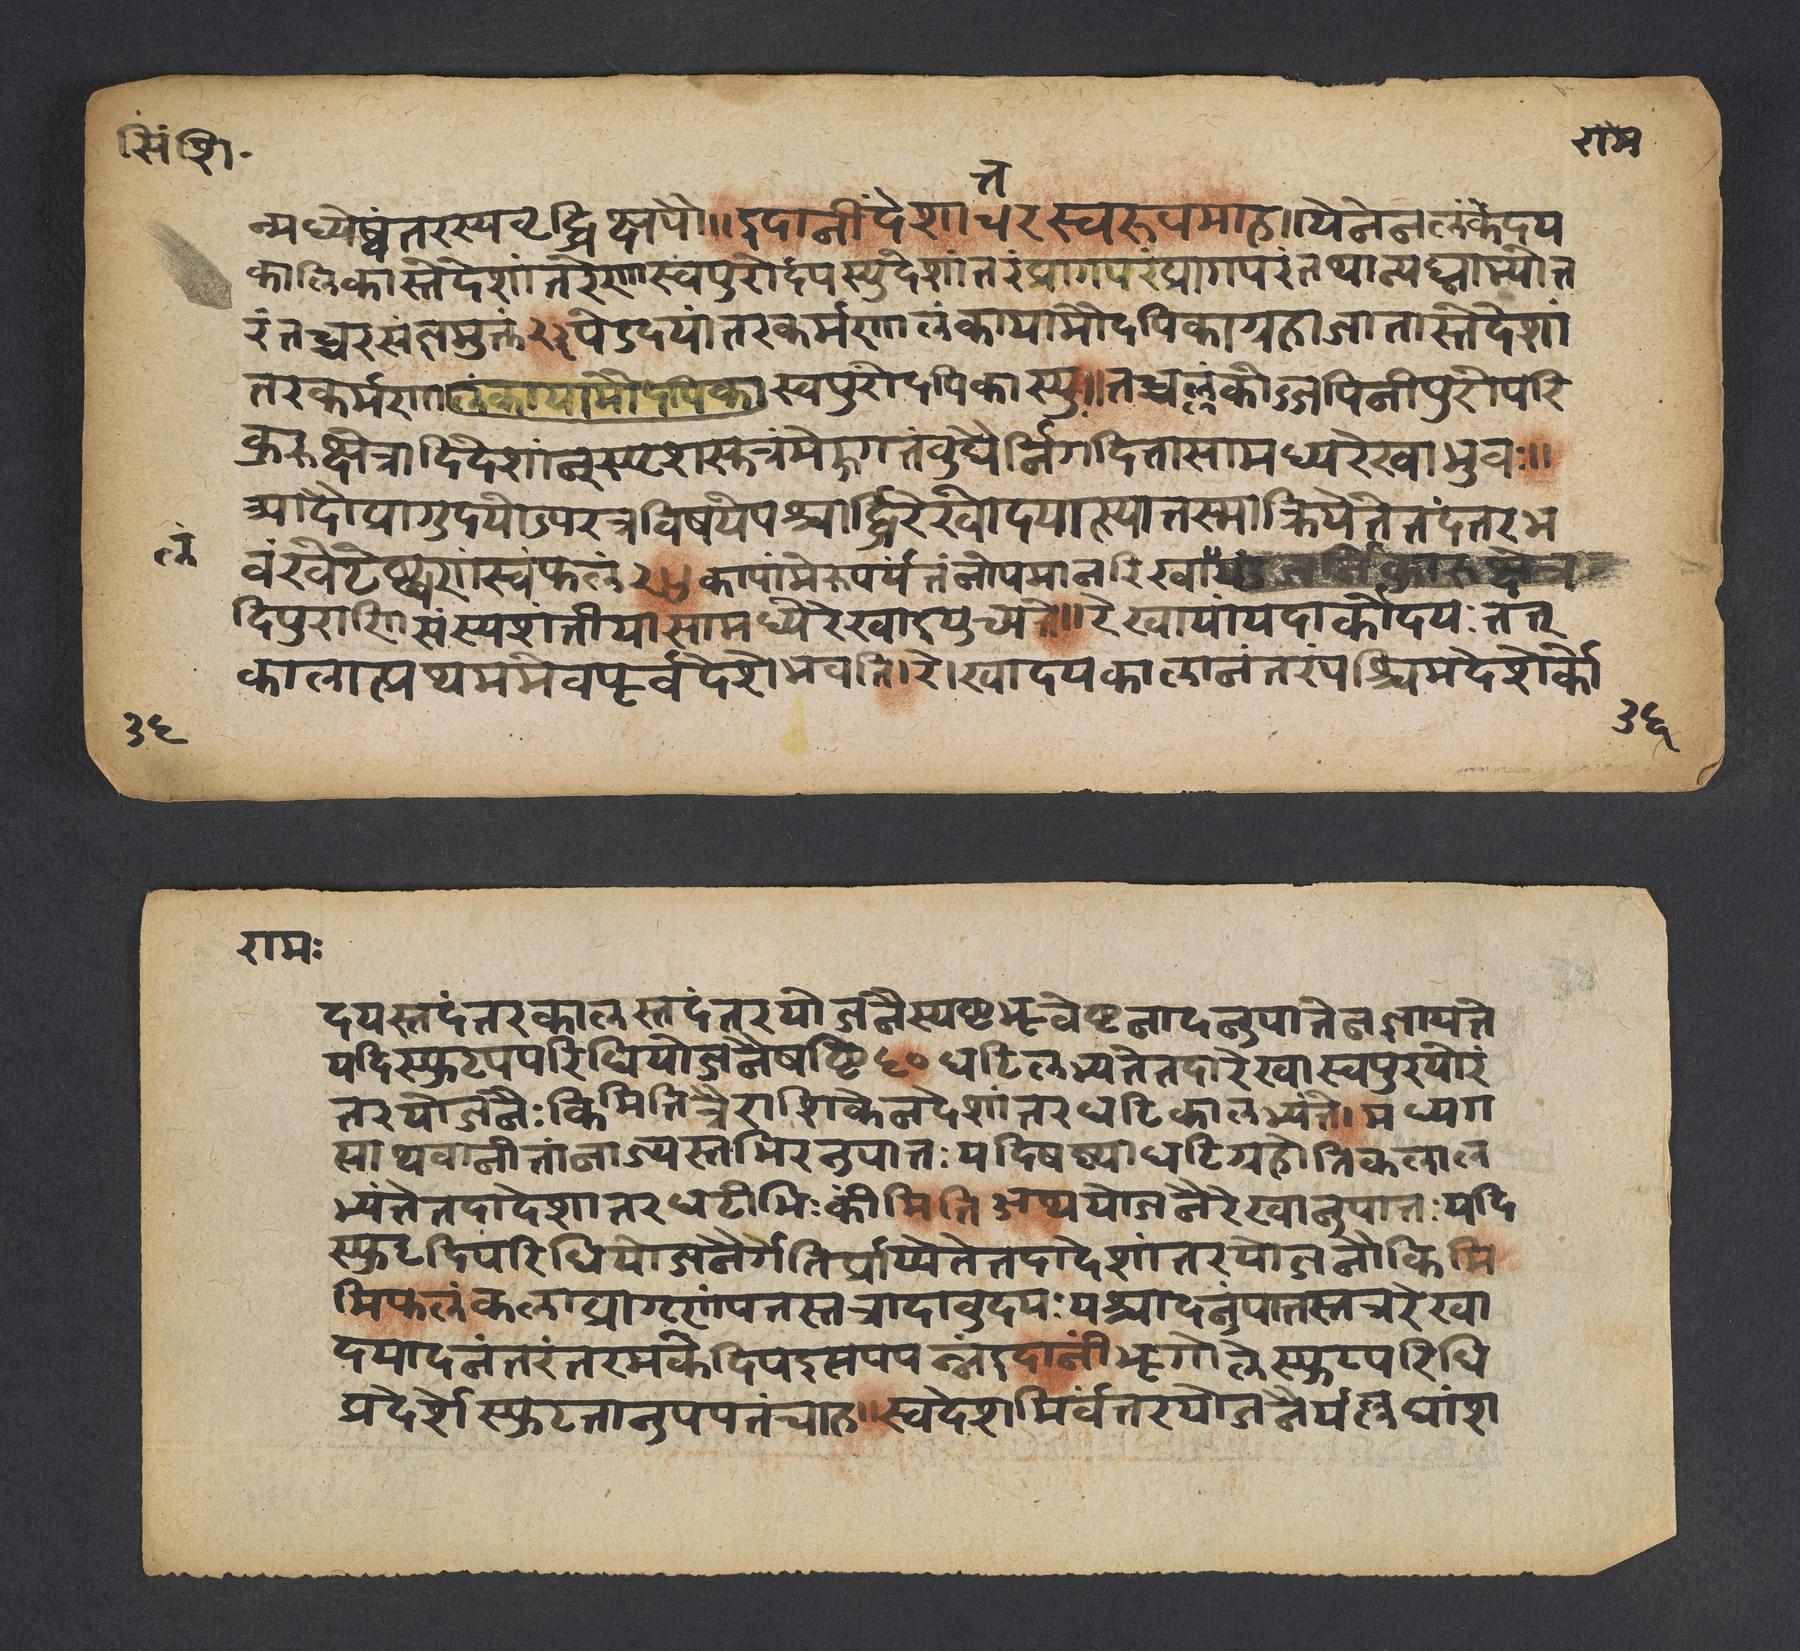 सिं शि॰
राम
त
न्मध्येष्वंतरस्यवृद्धिक्षापौ॥इदानींदेशाचरस्वरूपमाह॥येनेनलंकेदय
कालिकास्तेदेशांतरेणस्वपुरोदपस्युदेशांतरंप्रागपरंप्रागपरंतथान्यद्याम्योत
रंतच्चरसंज्ञमुक्तं२३पेऽदयांतरकर्मणालंकायामौदपिकाग्रहाजातास्तेदेशां
तरकर्मणालंकायामौदपिकास्वपुरोदपिकास्यु॥तच्चलंकोज्जपिनीपुरोपरि
क्रुरुक्षेत्रादिदेशांन्स्पृशस्तत्रंमेरुगतंवुधैर्निगदितासामध्यरेखाभुवः॥
आदौप्रागुदयोऽपरत्रविषयेपश्चार्द्धिरेखोदयात्स्यातस्माक्रियेतेतदंतरभ
लं
वंखेटेष्वृणंस्वंफलं२४कापांमेरूपर्यंतंनीपमानरिखा
दिपुराणिसंस्पशंतीयासामध्येरेखाइयुच्यते॥रेखायांयदार्कोदयःतत्
कालात्प्रथममेवपूर्वदेशेभवति।रे।खादयकालानंतरंपश्चिमदेशेर्को
३६
३६
रामः
दयस्तदंतरकालस्तदंतरयोजनैस्पष्टभूवेष्टनादनुपातेनज्ञायते
यदिस्फुटपपरिधियोजनैषष्टि६०घटिलभ्यतेतदारेखास्वपुरयोरं
तरयोजनैःकिमितित्रैराशिकेनदेशांतरघटिकालभ्यंते।मध्यग
साथवानीतांनाज्यस्तभिरनुपातःपदिषष्ट्याघटिग्रहोतिकलाल
भ्यंतेतदादेशातरघटीभिःकीमितिअथयोजनैरेखानुपातःयदि
स्फुटदिपरिधियोजनैर्गतिर्प्राप्येतेतदादेशांतरयोजनौकिमि
मिफलंकलाप्राग्णंपतस्तत्रादावुदयःपश्चादनंपातस्तत्ररेखा
दयादनंतरंतरमर्केदिपइसपपन्नंइदानींभूगोलेस्फुटपरिधि
प्रदेशेस्फुटतानुपपतंचाह॥स्वदेशमिर्वंतरयोजनैर्यल्लघांश